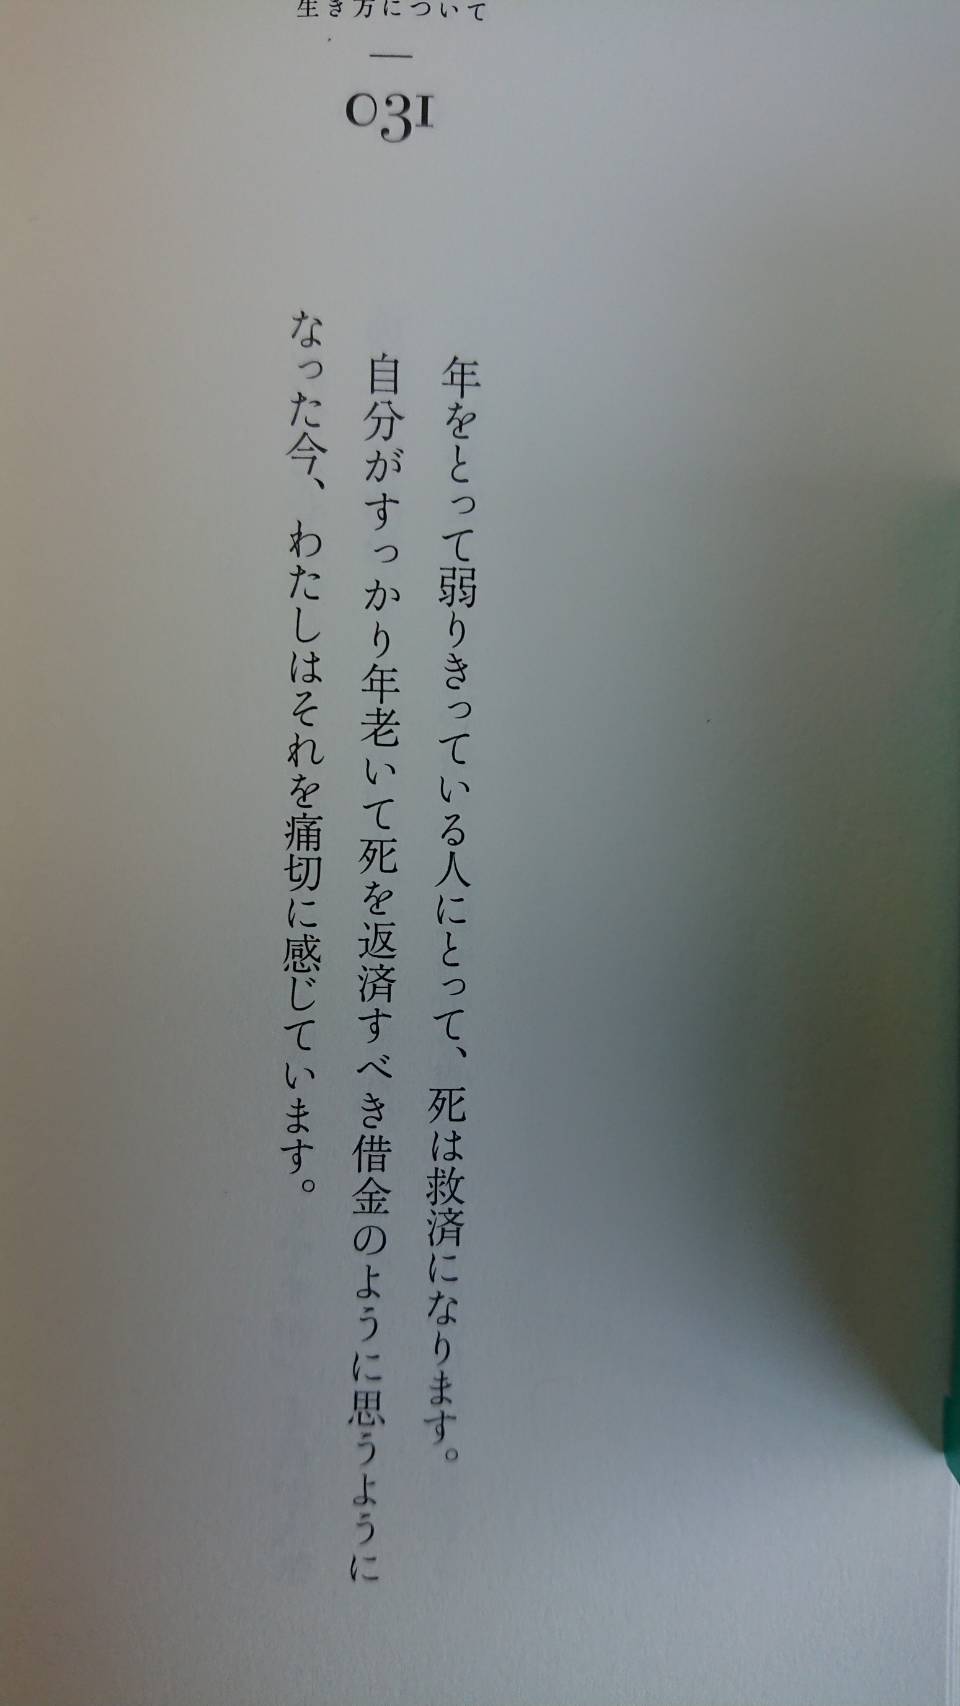 生き方について
031
年をとって弱りきっている人にとって、死は救済になります。
自分がすっかり年老いて死を返済すべき借金のように思うように
なった今、わたしはそれを痛切に感じています。